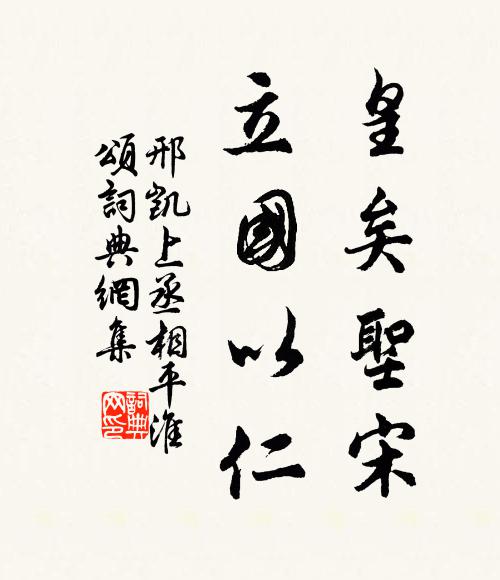 皇矣聖宋
立國以仁
邢凱上丞相平淮
頌詞典網集
詞典
网印